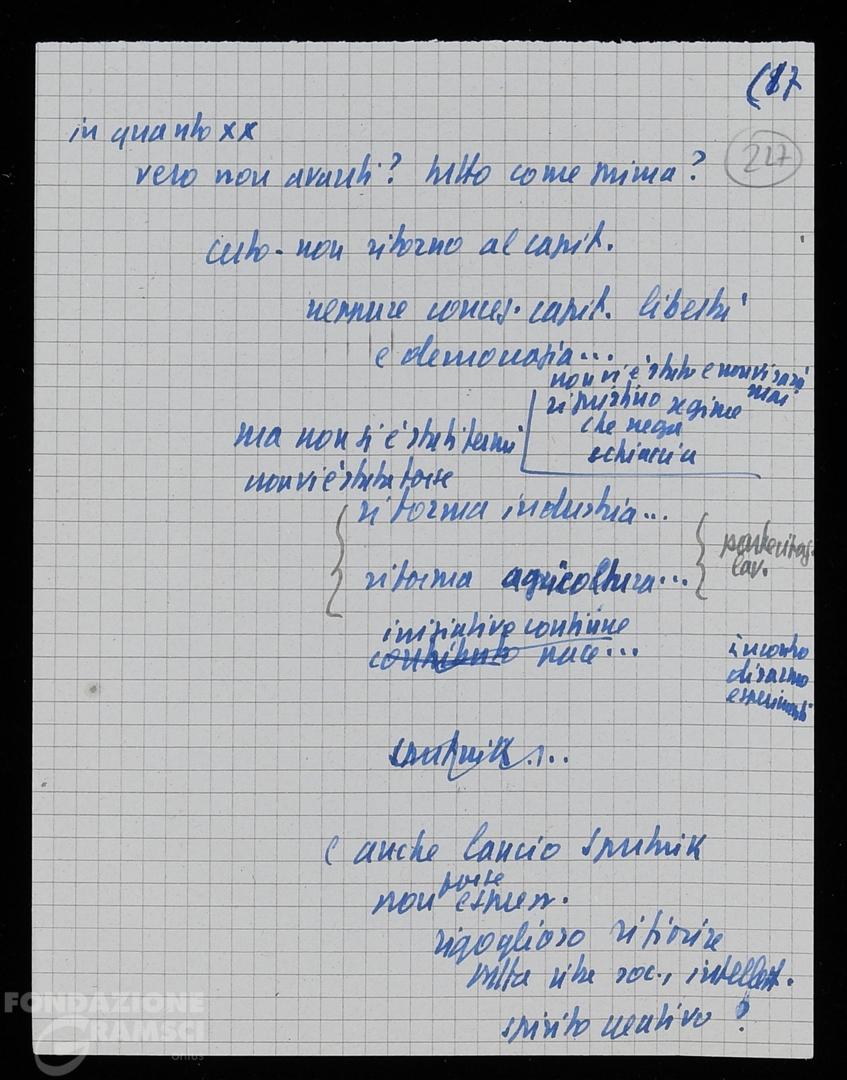 (17
227
in quanto xx
vero non avanti? tutto come prima?
certo - non ritorno al capit.
neppure conces. capit. libertà
e democrazia...
non vi è stato e non vi sarà
mai
ripristino regime
che nega
schiaccia
ma non si è stati fermi
non vi è stata forse
riforma industria...
riforma agricoltura...
lav.
iniziative continue
pace...
incontro
disarmo
esperimenti
sputnik...
e anche lancio sputnik
forse
non espress.
rigoglioso rifiorire
tutta vita soc., intellett.
spirito creativo?
FONDAZIONE
GRAMSCI
onlus